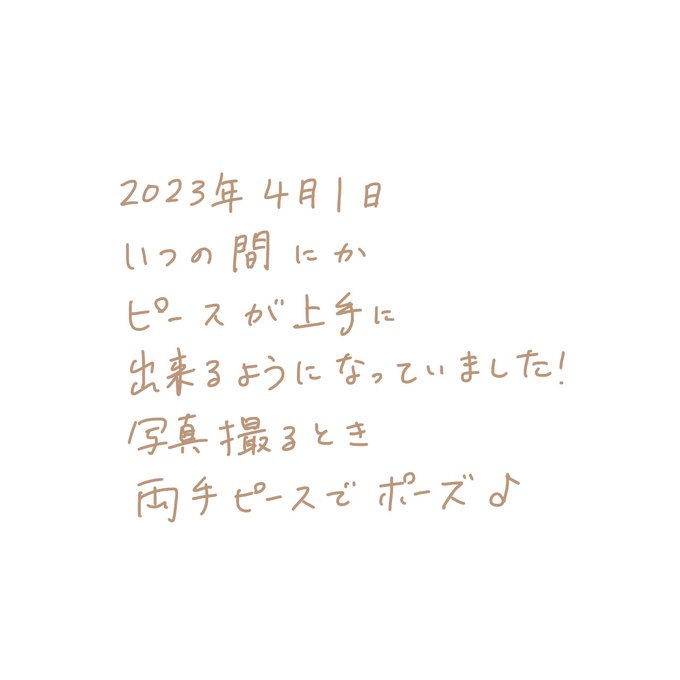 2023年 4月1日
いつの間にか
ピースが上手に
出来るようになっていました!
写真撮るとき
両手ピースでポーズ♪